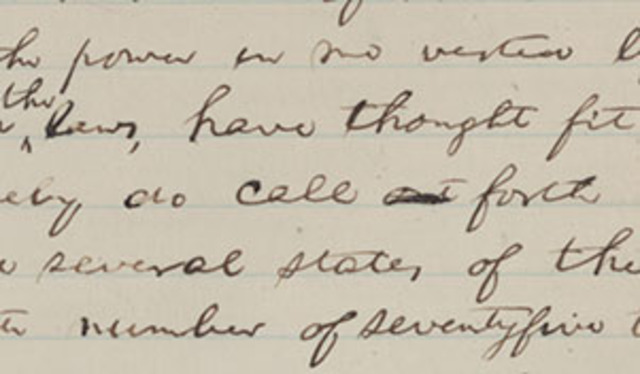 the power in me vested
the
laws, have thought fit
eby do call out forth
several states of the
number of seventyfive